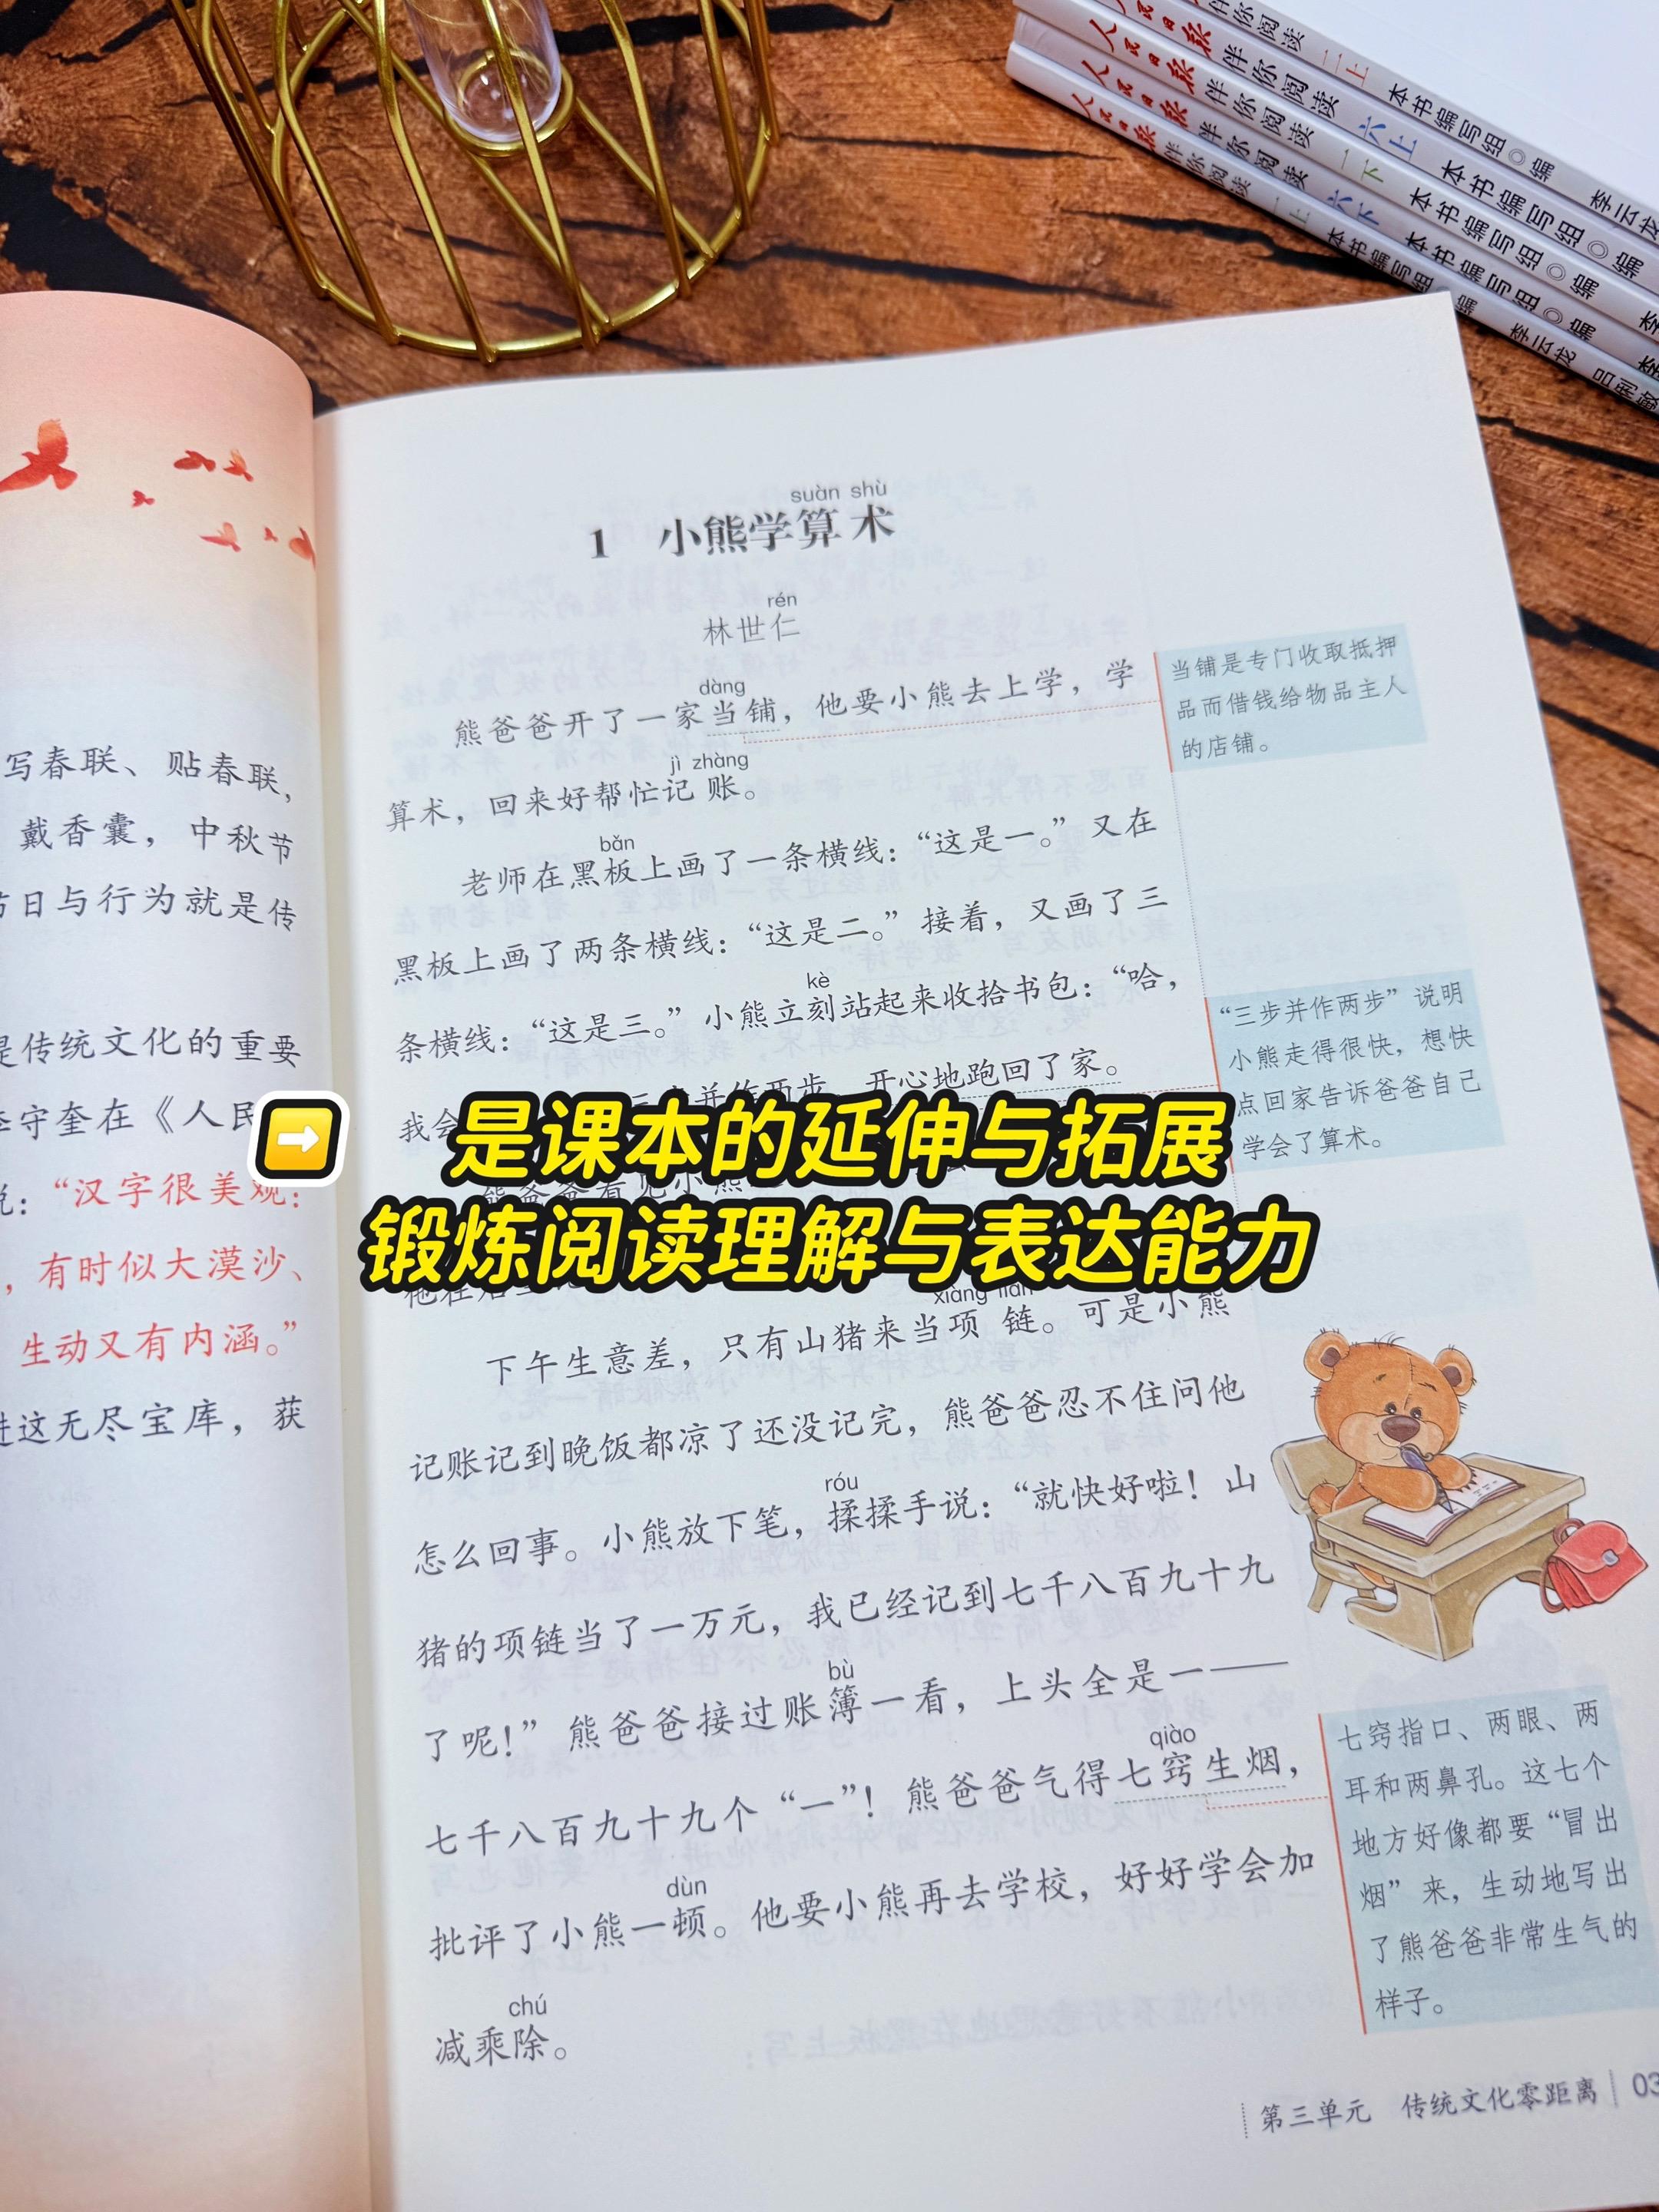 人民日报 伴你阅读 二上 本书编写组◎编 李云龙
人民日报 伴你阅读 六上 本书编写组◎编
人民日报 伴你阅读 二下 本书编写组◎编
人民日报 伴你阅读 六下 本书编写组◎编 李
人民日报 伴你阅读 一上 本书编写组 编 李云龙 吕俐敏
写春联、贴春联,
戴香囊，中秋节
日与行为就是传
是传统文化的重要
李守奎在《人民
说：“汉字很美观：
，有时似大漠沙、
生动又有内涵。”
进这无尽宝库，获
suàn shù
1 小熊学算术
rén
林世仁
dàng
熊爸爸开了一家当铺，他要小熊去上学，学
jì zhàng
算术，回来好帮忙记账。
bǎn
老师在黑板上画了一条横线：“这是一。”又在
黑板上画了两条横线：“这是二。”接着，又画了三
kè
条横线：“这是三。”小熊立刻站起来收拾书包：“哈，
我会 三步并作两步，开心地跑回了家。
熊爸爸看见小熊
➡ 是课本的延伸与拓展
锻炼阅读理解与表达能力
xiàng liàn
下午生意差，只有山猪来当项链。可是小熊
记账记到晚饭都凉了还没记完，熊爸爸忍不住问他
róu
怎么回事。小熊放下笔，揉揉手说：“就快好啦！山
猪的项链当了一万元，我已经记到七千八百九十九
bù
了呢！”熊爸爸接过账簿一看，上头全是一——
qiào
七千八百九十九个“一”！熊爸爸气得七窍生烟，
dùn
批评了小熊一顿。他要小熊再去学校，好好学会加
chú
减乘除。
当铺是专门收取抵押
品而借钱给物品主人
的店铺。
“三步并作两步”说明
小熊走得很快，想快
点回家告诉爸爸自己
学会了算术。
七窍指口、两眼、两
耳和两鼻孔。这七个
地方好像都要“冒出
烟”来，生动地写出
了熊爸爸非常生气的
样子。
第三单元 传统文化零距离 03